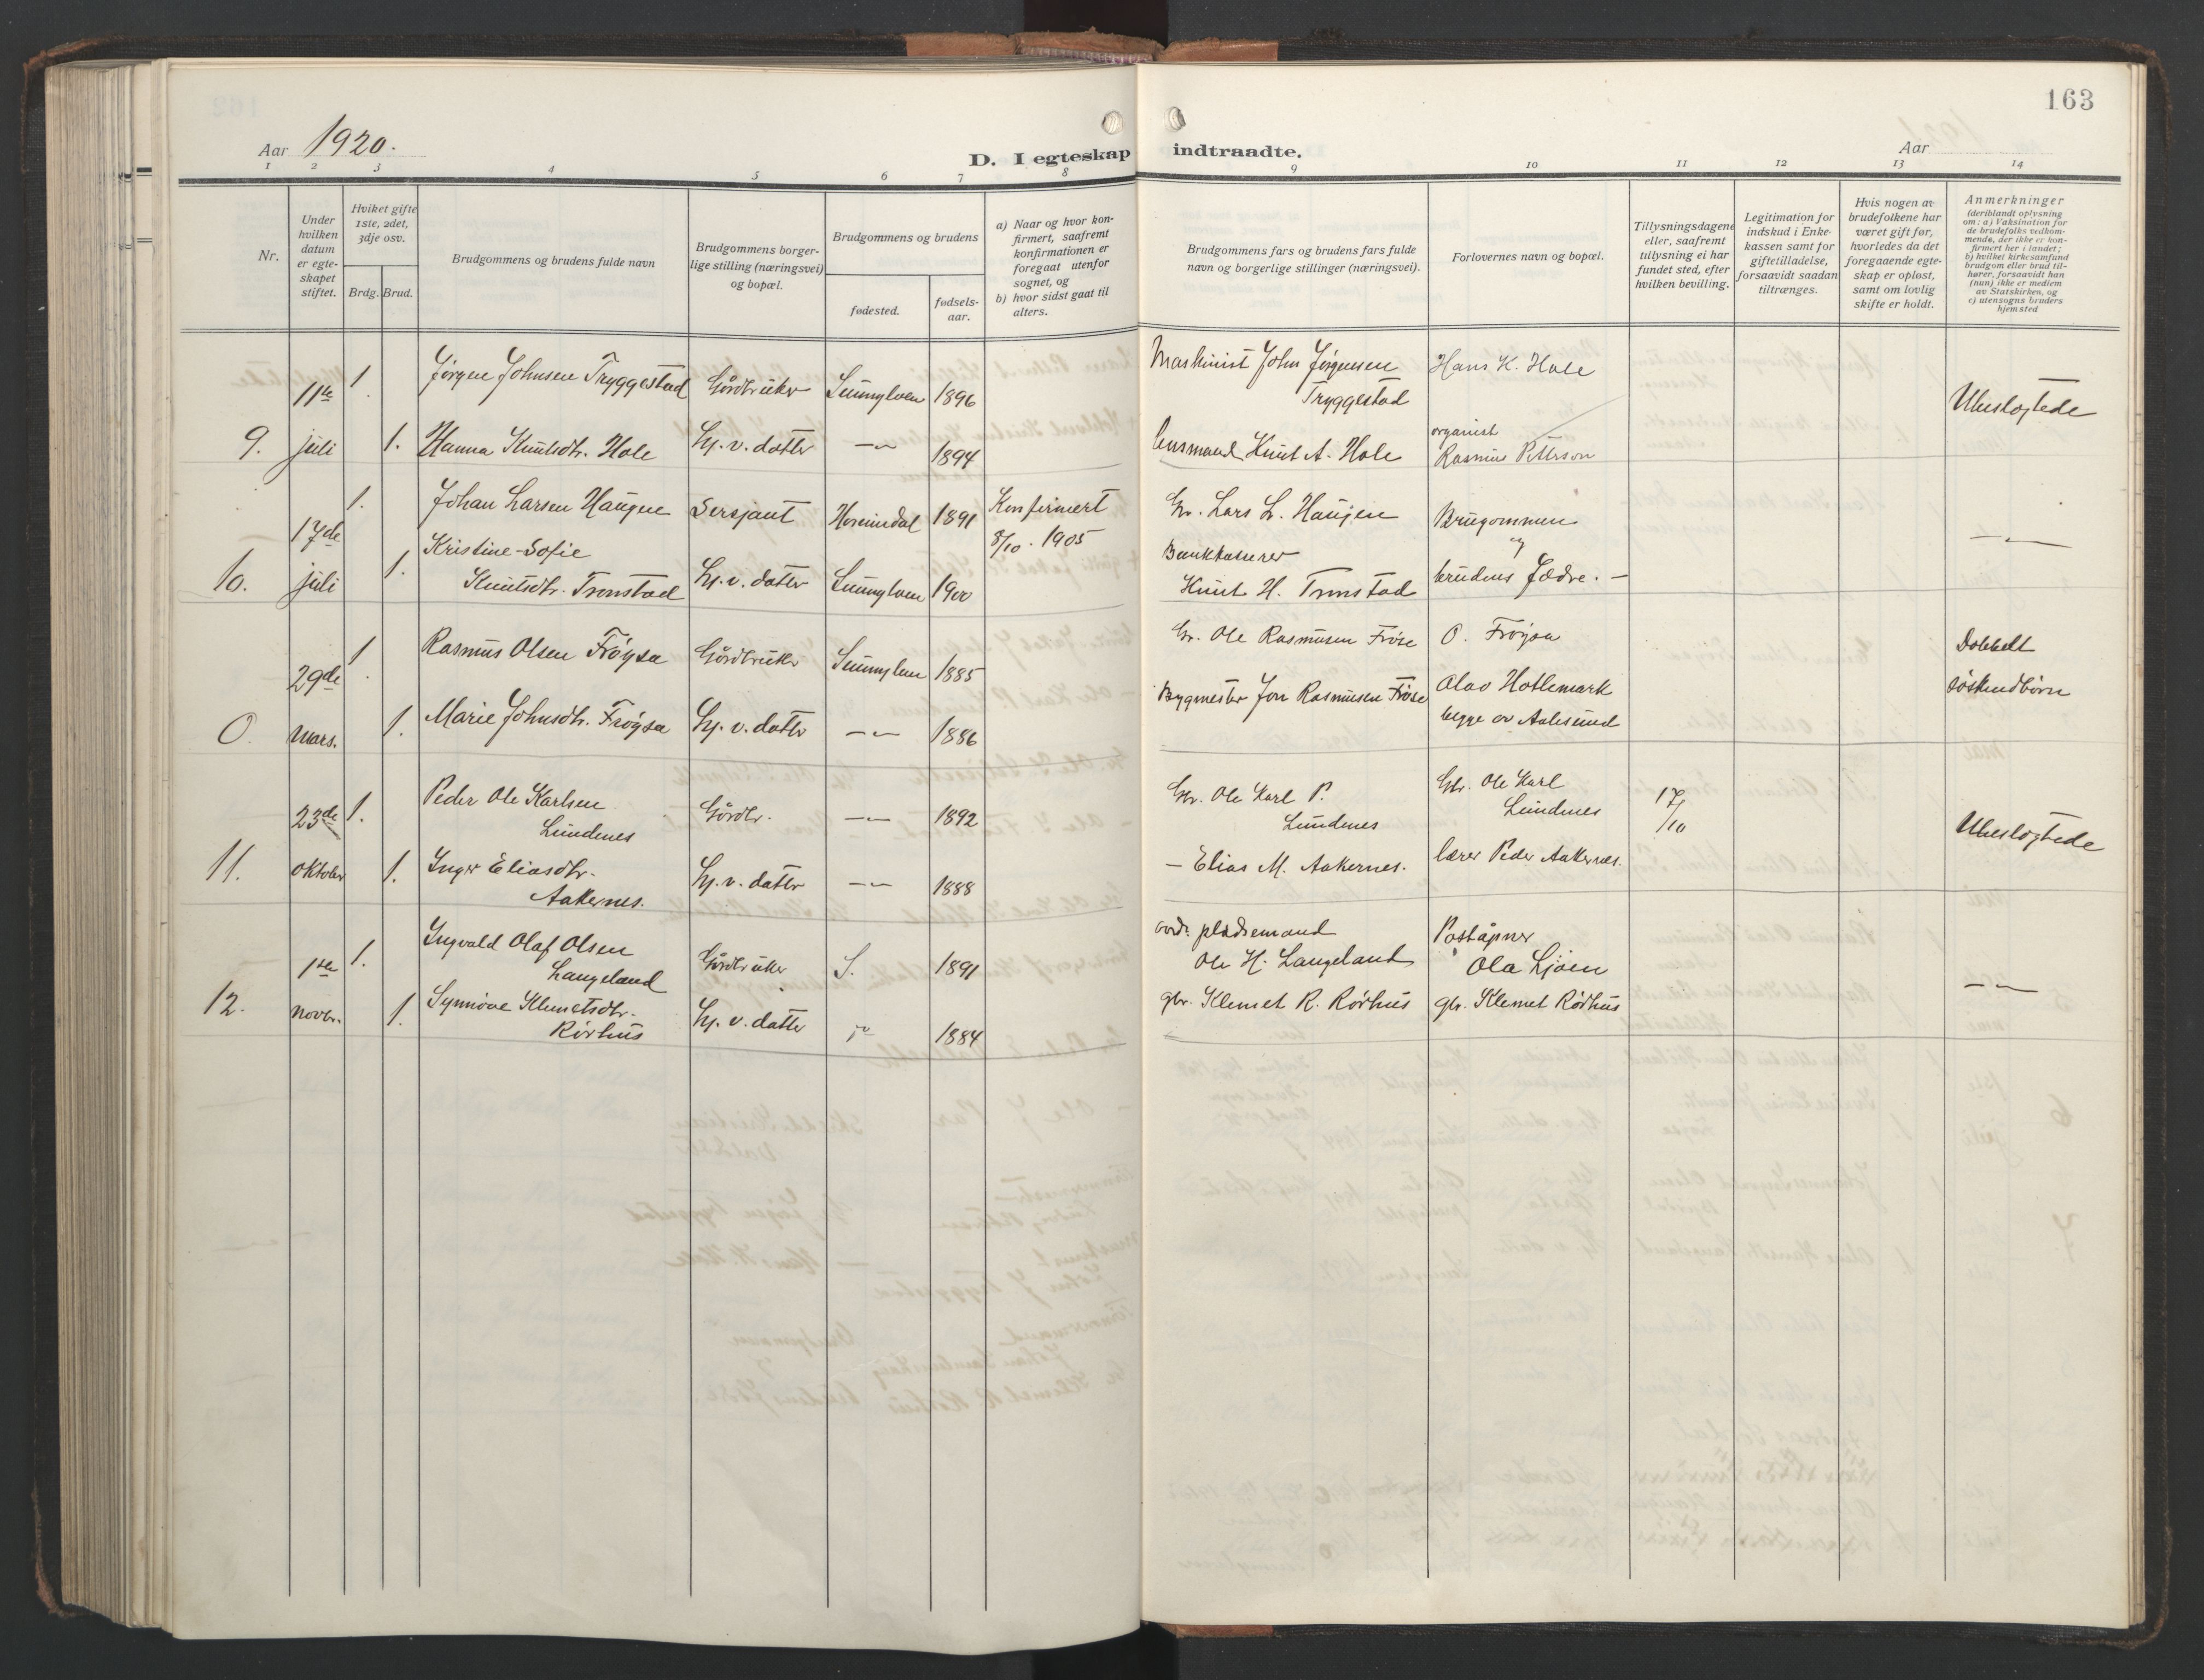 163
Aar 1920.
D. I egteskap indtraadte.
Aar
1 2 3 4 5 6 7 8 9 10 11 12 13 14
Nr.
Under
hvilken
datum
er egte-
skapet
stiftet.
Hviket gifte
1ste, 2det,
3dje osv.
Brdg. Brud.
Brudgommens og brudens fulde navn
Brudgommens borger-
lige stilling (næringsvei)
og bopæl.
Brudgommens og brudens
fødested.
fødsels-
aar.
a) Naar og hvor kon-
firmert, saafremt
konfirmationen er
foregaat utenfor
sognet, og
b) hvor sidst gaat til
alters.
Brudgommens fars og brudens fars fulde
navn og borgerlige stillinger (næringsvei).
Forlovernes navn og bopæl.
Tillysningsdagene
eller, saafremt
tillysning ei har
fundet sted, efter
hvilken bevilling.
Legitimation for
indskud i Enke-
kassen samt for
giftetilladelse,
forsaavidt saadan
tiltrænges.
Hvis nogen av
brudefolkene har
været gift før,
hvorledes da det
foregaaende egte-
skap er opløst,
samt om lovlig
skifte er holdt.
Anmerkninger
(deriblandt oplysning
om: a) Vaksination for
de brudefolks vedkom-
mende, der ikke er kon-
firmert her i landet;
b) hvilket kirkesamfund
brudgom eller brud til-
hører, forsaavidt han
(hun) ikke er medlem
av Statskirken, og
c) utensogns bruders
hjemsted
9.
11te
juli
1.
Jørgen Johnsen Tryggestad
Gårdbruker
Sunnylven
1896
Maskinist John Jørgensen
Tryggestad
Hans K. Hole
Ubeslogtede
1.
Hanna Knutsdtr. Hole
Hj. v. datter
-"-
1894
lensmand Knut A. Hole
organist
Rasmus Petterson
10.
17de
juli
1.
Johan Larsen Haugen
Sersjant
Hornindal
1891
Konfirmert
8/10. 1905
Gr. Lars L. Haugen
Brugommen
og
brudens Fædre. -
-"-
1.
Kristine-Sofie
Knutsdtr. Tronstad
Hj. v. datter
Sunnylven
1900
Bankkasserer
Knut H. Tronstad
0
29de
Mars.
1.
Rasmus Olsen Frøysa
Gårdbruker
Sunnylven
1885
Gr. Ole Rasmusen Frøse
O. Frøysa
Dobbelt
søskendbørn
1.
Marie Johnsdtr. Frøysa
Hj. v. datter
-"-
1886
Bygmester Jon Rasmusen Frøse
Olav Hotlemark
begge av Aalesund
11.
23de
oktober
1.
Peder Ole Karlsen
Lundenes
Gårdbr.
-"-
1892
Gbr. Ole Karl P.
Lundenes
Gbr. Ole Karl
Lundenes
17/10
Ubeslogtede
1.
Inger Eliasdtr.
Aakernes.
Hj. v. datter
-"-
1888
- Elias M. Aakernes.
lærer Peder Aakernes.
12.
1ste
novbr.
1.
Ingvald Olaf Olsen
Langeland
Gårdbruker
S.
1891
pladsemand
Ole H. Langeland
Poståpner
Ola Ljøen
-"-
1.
Synnøve Klemetsdtr.
Rørhus
Hj. v. datter
1884
gbr. Klemet R. Rørhus
gbr. Klemet Rørhus